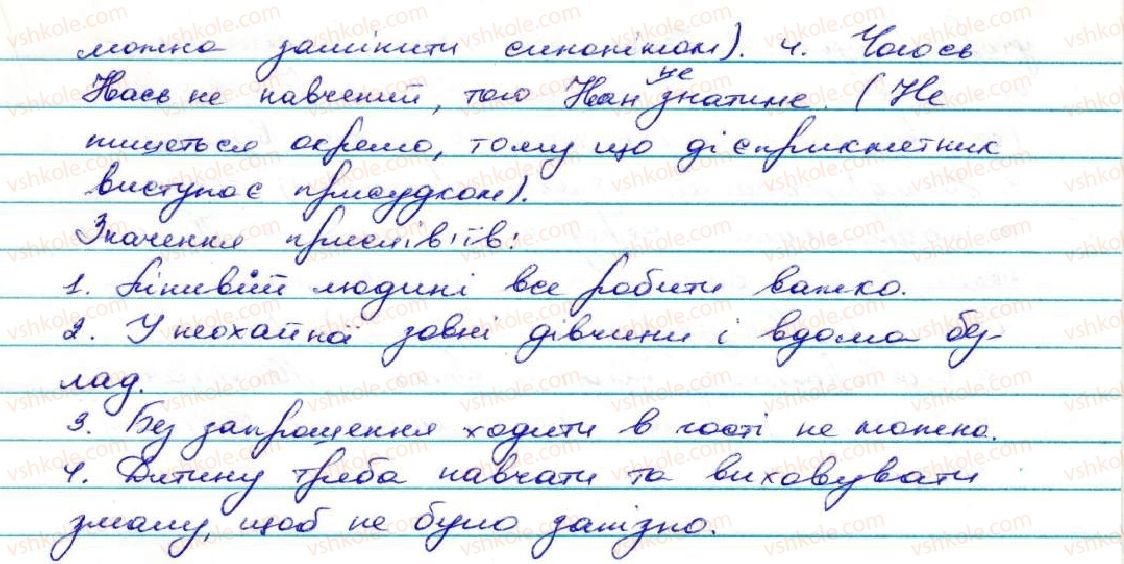 можна замінити синонімом). 4. Чогось
Нась не навчений, того Нан не знатиме. (Не
пишеться окремо, тому що дієприкметник
виступає присудком).
Значення прислів'їв:
1. Лінивій людині все робити важко.
2. У неохайної зовні дівчини і вдома бе-
лад.
3. Без запрошення ходити в гості не можна.
4. Дитину треба навчати та виховувати
змалу, щоб не було запізно.